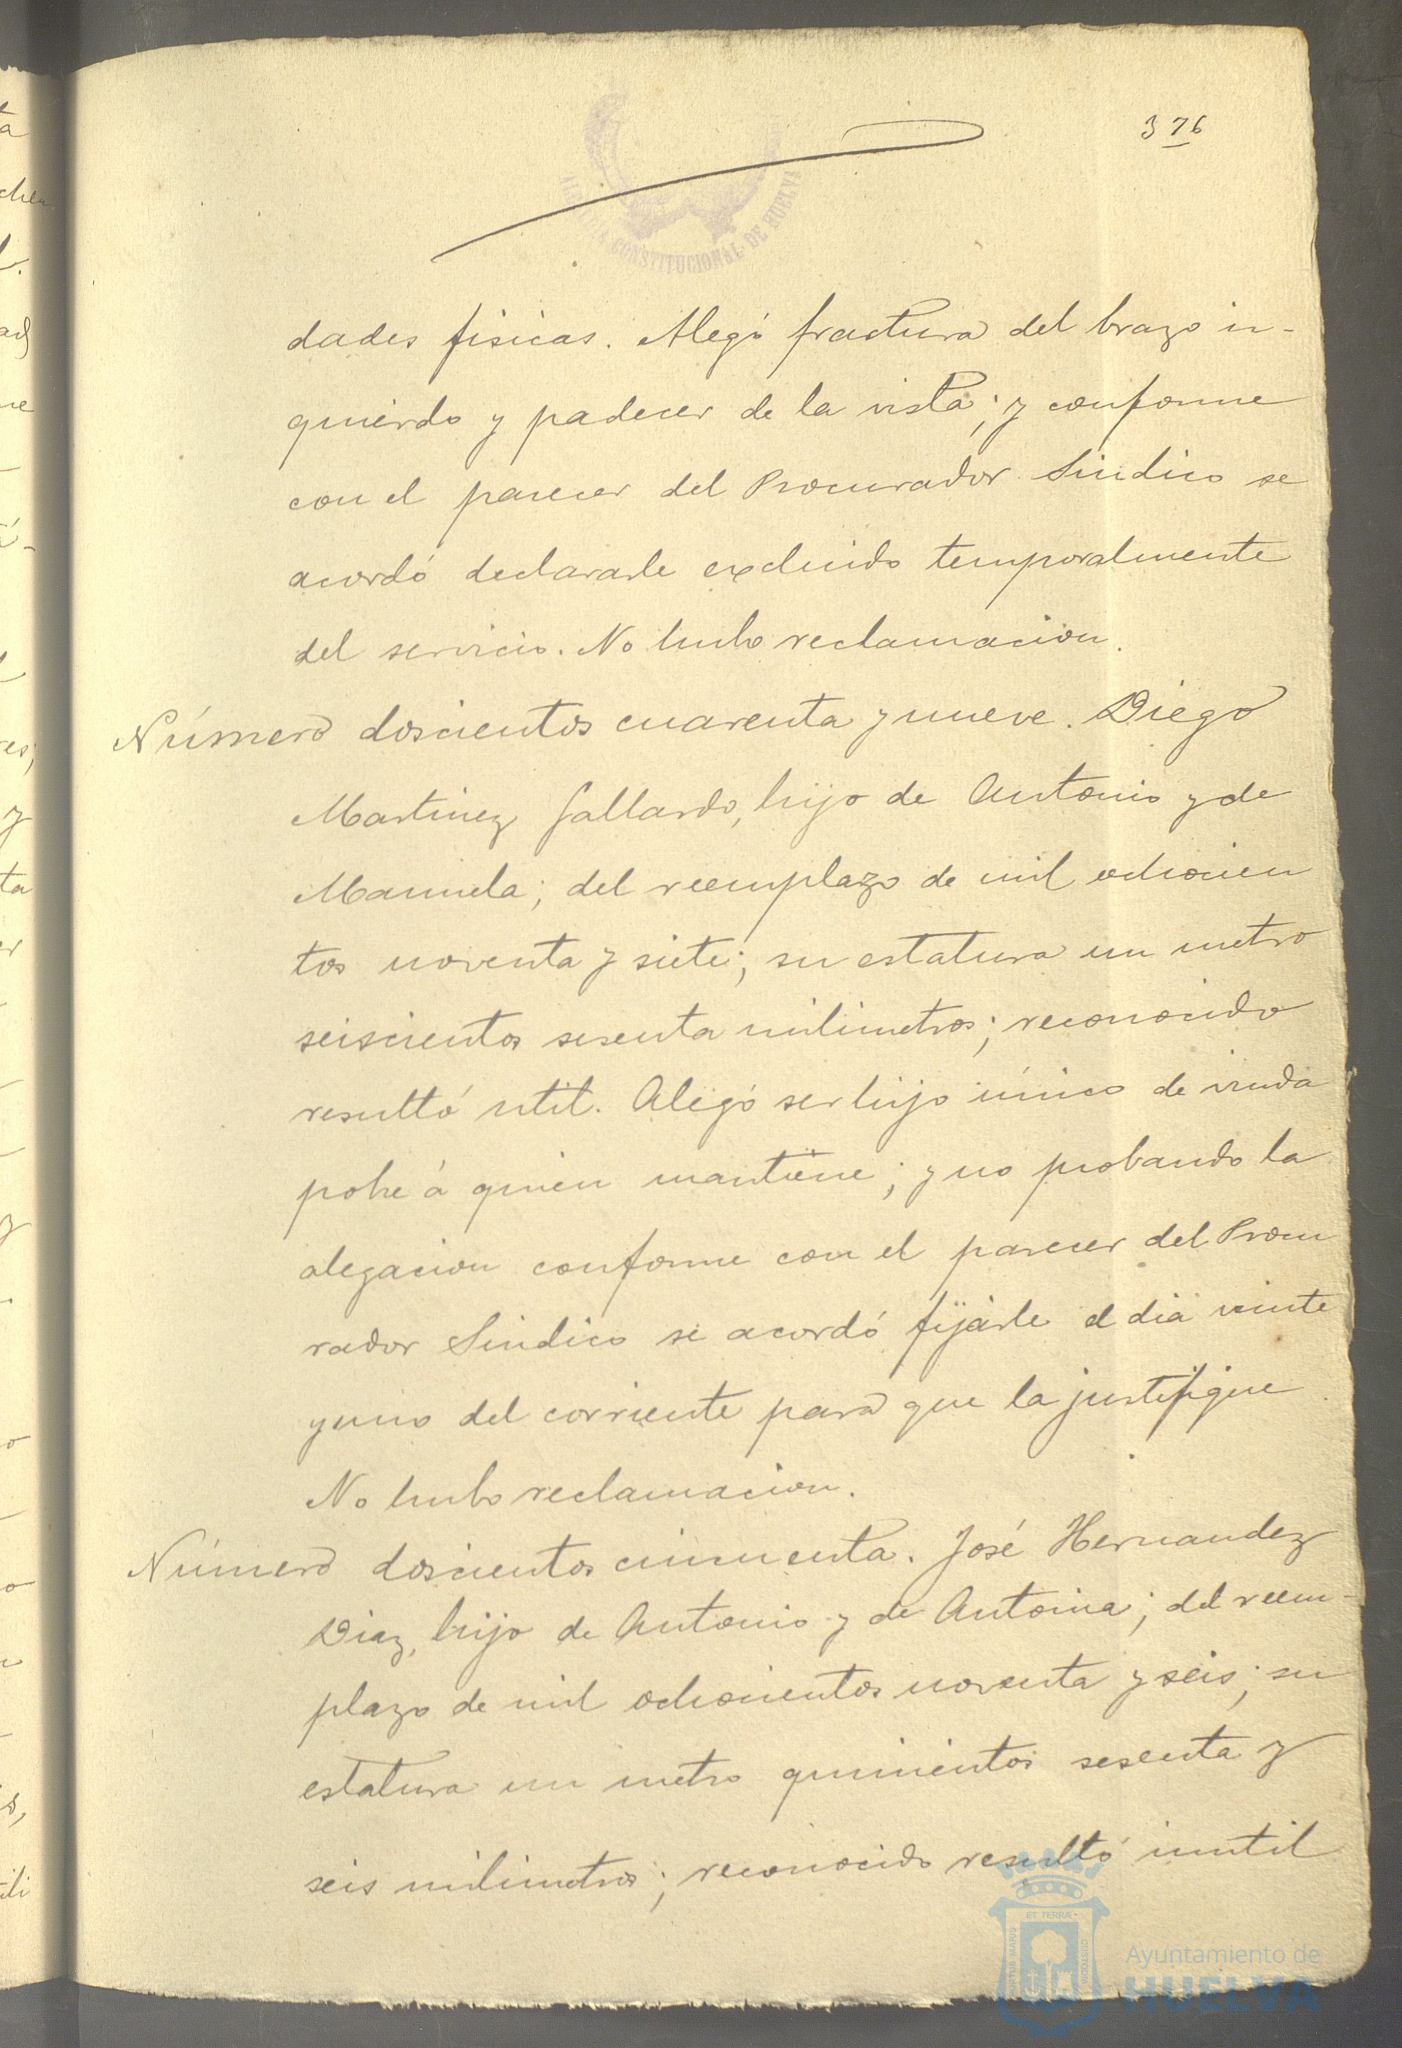 376
ALCALDIA CONSTITUCIONAL DE HUELVA
dades fisicas. Alegó fractura del brazo iz-
quierdo y padecer de la vista; y conforme
con el parecer del Procurador Sindico se
acordó declararle excluido temporalmente
del servicio. No hubo reclamacion.
Número doscientos cuarenta y nueve. Diego
Martinez Gallardo, hijo de Antonio y de
Manuela; del reemplazo de mil ochocien
tos noventa y siete; su estatura un metro
seiscientos sesenta milimetros; reconocido
resultó util. Alegó ser hijo único de viuda
pobre á quien mantiene; y no probando la
alegacion conforme con el parecer del Procu
rador Sindico se acordó fijarle el dia veinte
y uno del corriente para que la justifique.
No hubo reclamacion.
Número doscientos cincuenta. José Hernandez
Diaz, hijo de Antonio y de Antonia; del reem-
plazo de mil ochocientos noventa y seis; su
estatura un metro quinientos sesenta y
seis milimetros; reconocido resultó inutil
Ayuntamiento de
HUELVA